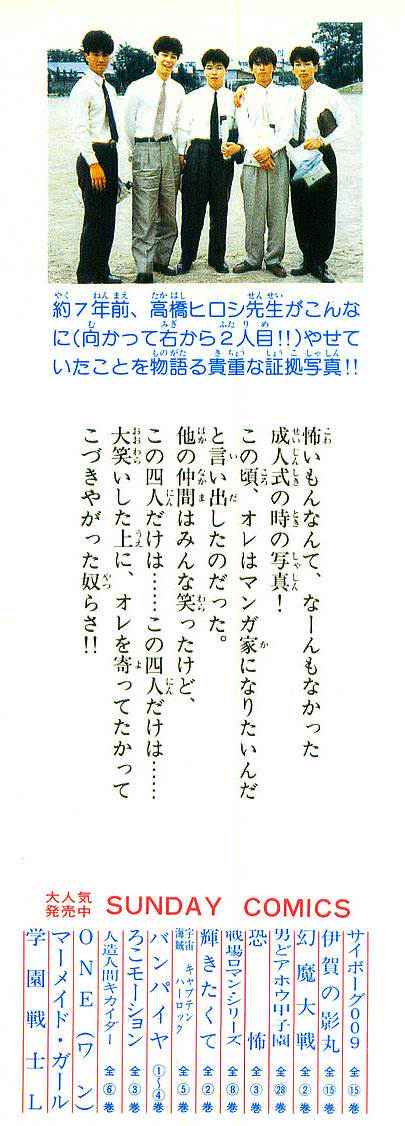 約7年前、高橋ヒロシ先生がこんな
に(向かって右から2人目!!)やせて
いたことを物語る貴重な証拠写真!!
怖いもんなんて、なーんもなかった
成人式の時の写真!
この頃、オレはマンガ家になりたいんだ
と言い出したのだった。
他の仲間はみんな笑ったけど、
この四人だけは……この四人だけは……
大笑いした上に、オレを寄ってたかって
こづきやがった奴らさ!!
大人気
発売中
SUNDAY COMICS
サイボーグ009 全⑮巻
伊賀の影丸 全⑮巻
幻魔大戦 全②巻
男どアホウ甲子園 全㉘巻
恐怖 全③巻
戦場ロマン・シリーズ 全⑧巻
輝きたくて 全②巻
宇宙海賊 キャプテンハーロック 全⑤巻
バンパイヤ ①〜④巻
ろこモーション 全③巻
人造人間キカイダー 全⑥巻
ONE(ワン)
マーメイド・ガール
学園戦士L